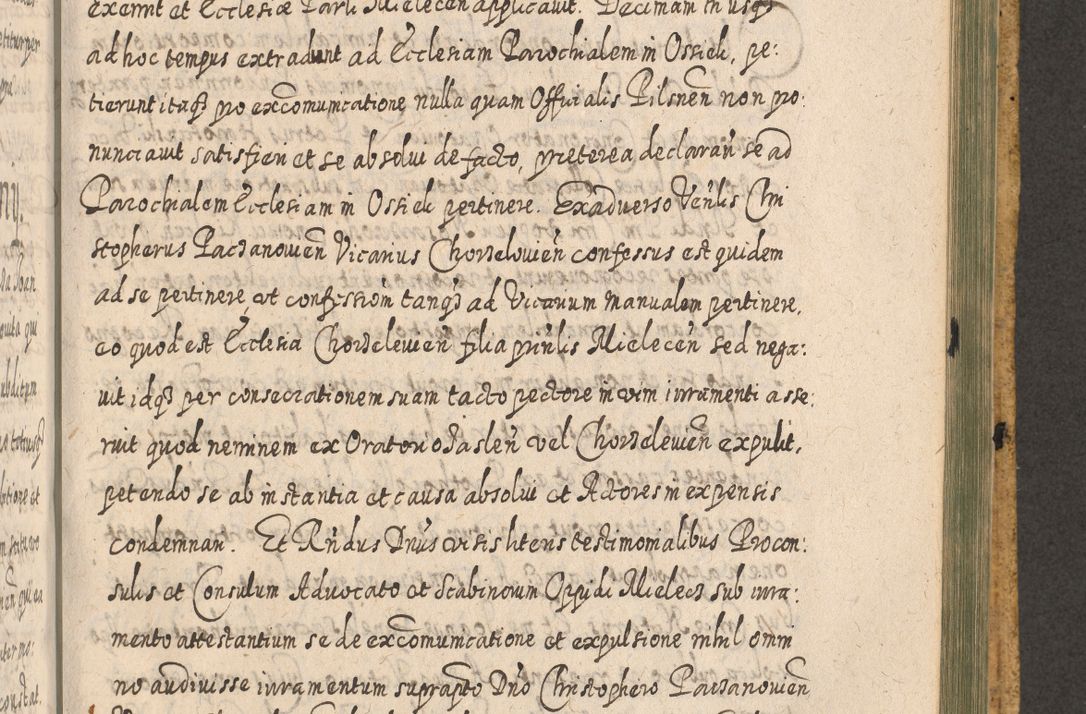 exemit et Ecclesiæ Parli Mielecen applicavit. Decimam in usq₃
ad hoc tempus extradunt ad Ecclesiam Parochialem in Ossiek, pe:
tierunt itaq₃ pro excõmunicatione nulla quam Officialis Pilsnẽn non pro:
nunciavit satisfieri et se absolvi de facto, præterea declarari se ad
Parochialem Ecclesiam in Ossiek pertinere. Ex adverso Venlis Chri
stopherus Paczanovien̄ Vicarius Chorzelovien̄ confessus est quidem
ad se pertinere et confession tanq₃ ad Vicarium Manualem pertinere,
eo quod est Ecclesia Chorzelevien̄ filia prin̄lis Mielecen̄ sed nega:
vit idq₃ per consecrationem suam tacto pectore in vim iuramenti asse:
ruit quod neminem ex Oratorio Jaslen̄ vel Chorzelevien̄ expulit,
petendo se ab instantia et causa absolvi et Actores in expensis
condemnari. Et Rn̄dus Dn̄us visis literis testimonialibus Procon:
sulis et Consulum Advocato et Scabinorum Oppidi Mielecz sub iura:
mento attestantium se de excõmunicatione et expulsione nihil omni
no audivisse iuramentum suprapto Dn̄o Christophero Paczanovien̄